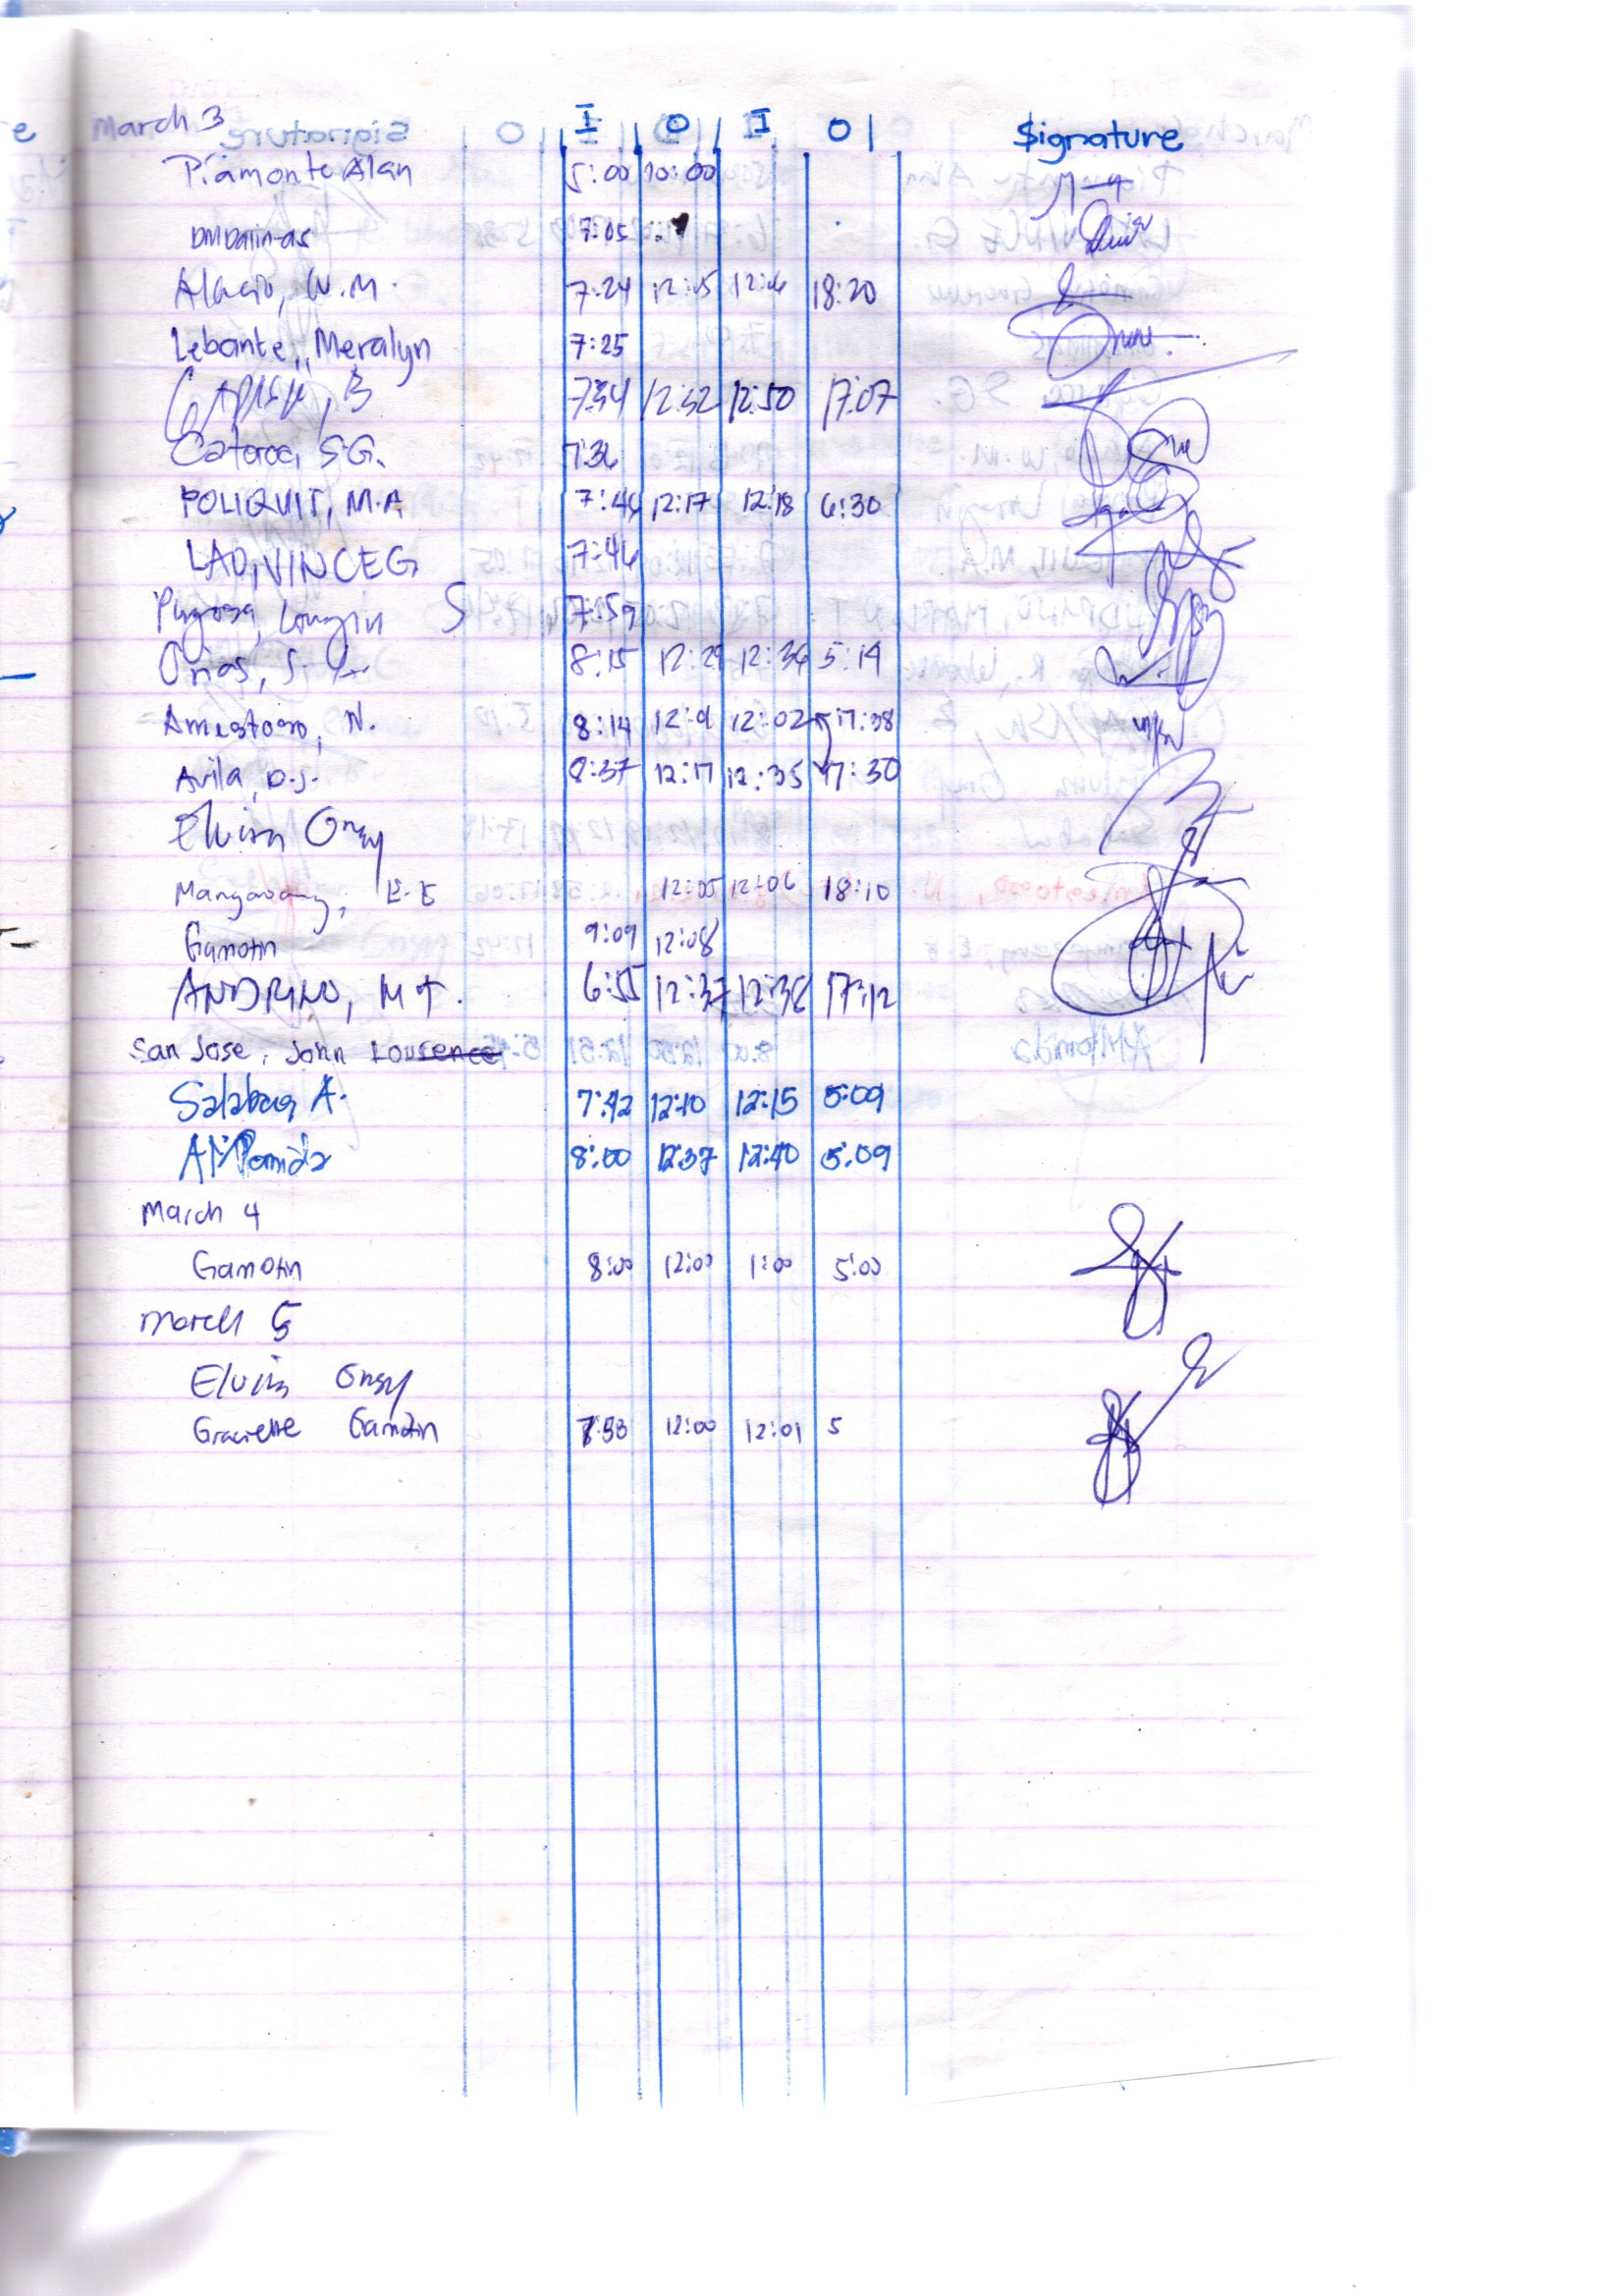 March 3 I O I O Signature
Piamonte Alan 5:00 10:00
DMDalin-as 7:05
Alacio, W.M. 7:24 12:15 12:16 18:20
Lebante, Meralyn 7:25
7:34 12:32 12:50 17:07
Cataroc, S.G. 7:36
POLIQUIT, M.A 7:46 12:17 12:18 6:30
LAO, VINCE G 7:46
Longin S 7:59
Orias, S. 8:15 12:29 12:36 5:14
Amestoso, N. 8:14 12:02 17:38
Avila, D.J. 8:37 12:17 12:35 17:30
Elvira Ongy
E.E 12:05 12:06 18:10
Gamotin 9:09 12:08
ANDRINO, M T. 6:55 12:37 12:38 17:12
San Jose, John Lourence
Salabao A. 7:42 12:10 12:15 5:09
AMPomida 8:00 12:37 12:40 5:09
March 4
Gamotin 8:00 12:00 1:00 5:00
March 5
Elvira Ongy
Gracielle Gamotin 7:53 12:00 12:01 5